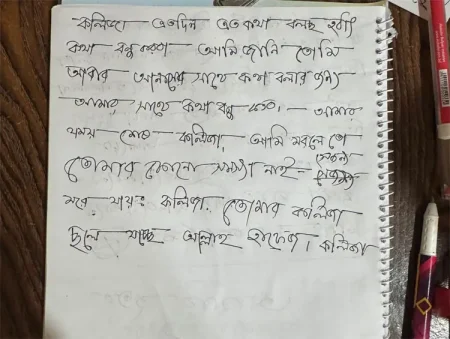 কলিজা এতদিন এত কথা বলছ হঠাৎ
কথা বন্ধ করলা আমি জানি তোমি
আবার অন্যের সাথে কথা বলার জন্য
আমার সাথে কথা বন্ধ করছ। আমার
সময় শেষ কলিজা, আমি মরলে তো
তোমার কোনো সমস্যা নাই- সেজন্য
মরে যায়ঃ কলিজা. তোমার কলিজা
চলে যাচ্ছে আল্লাহ হাফেজ। কলিজা